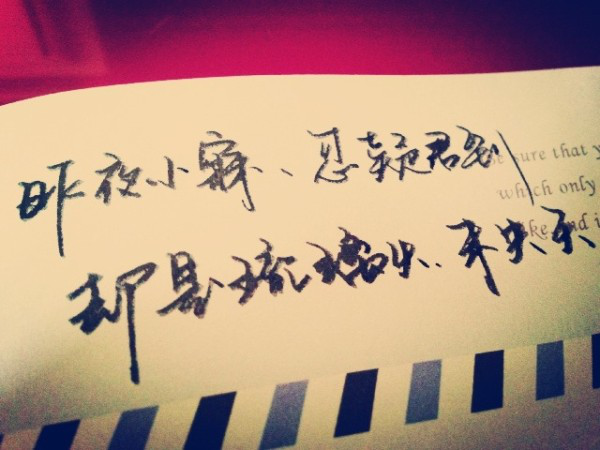 昨夜小寐、忽疑君到
却是琉璃火、未央天
sure that
which only
and